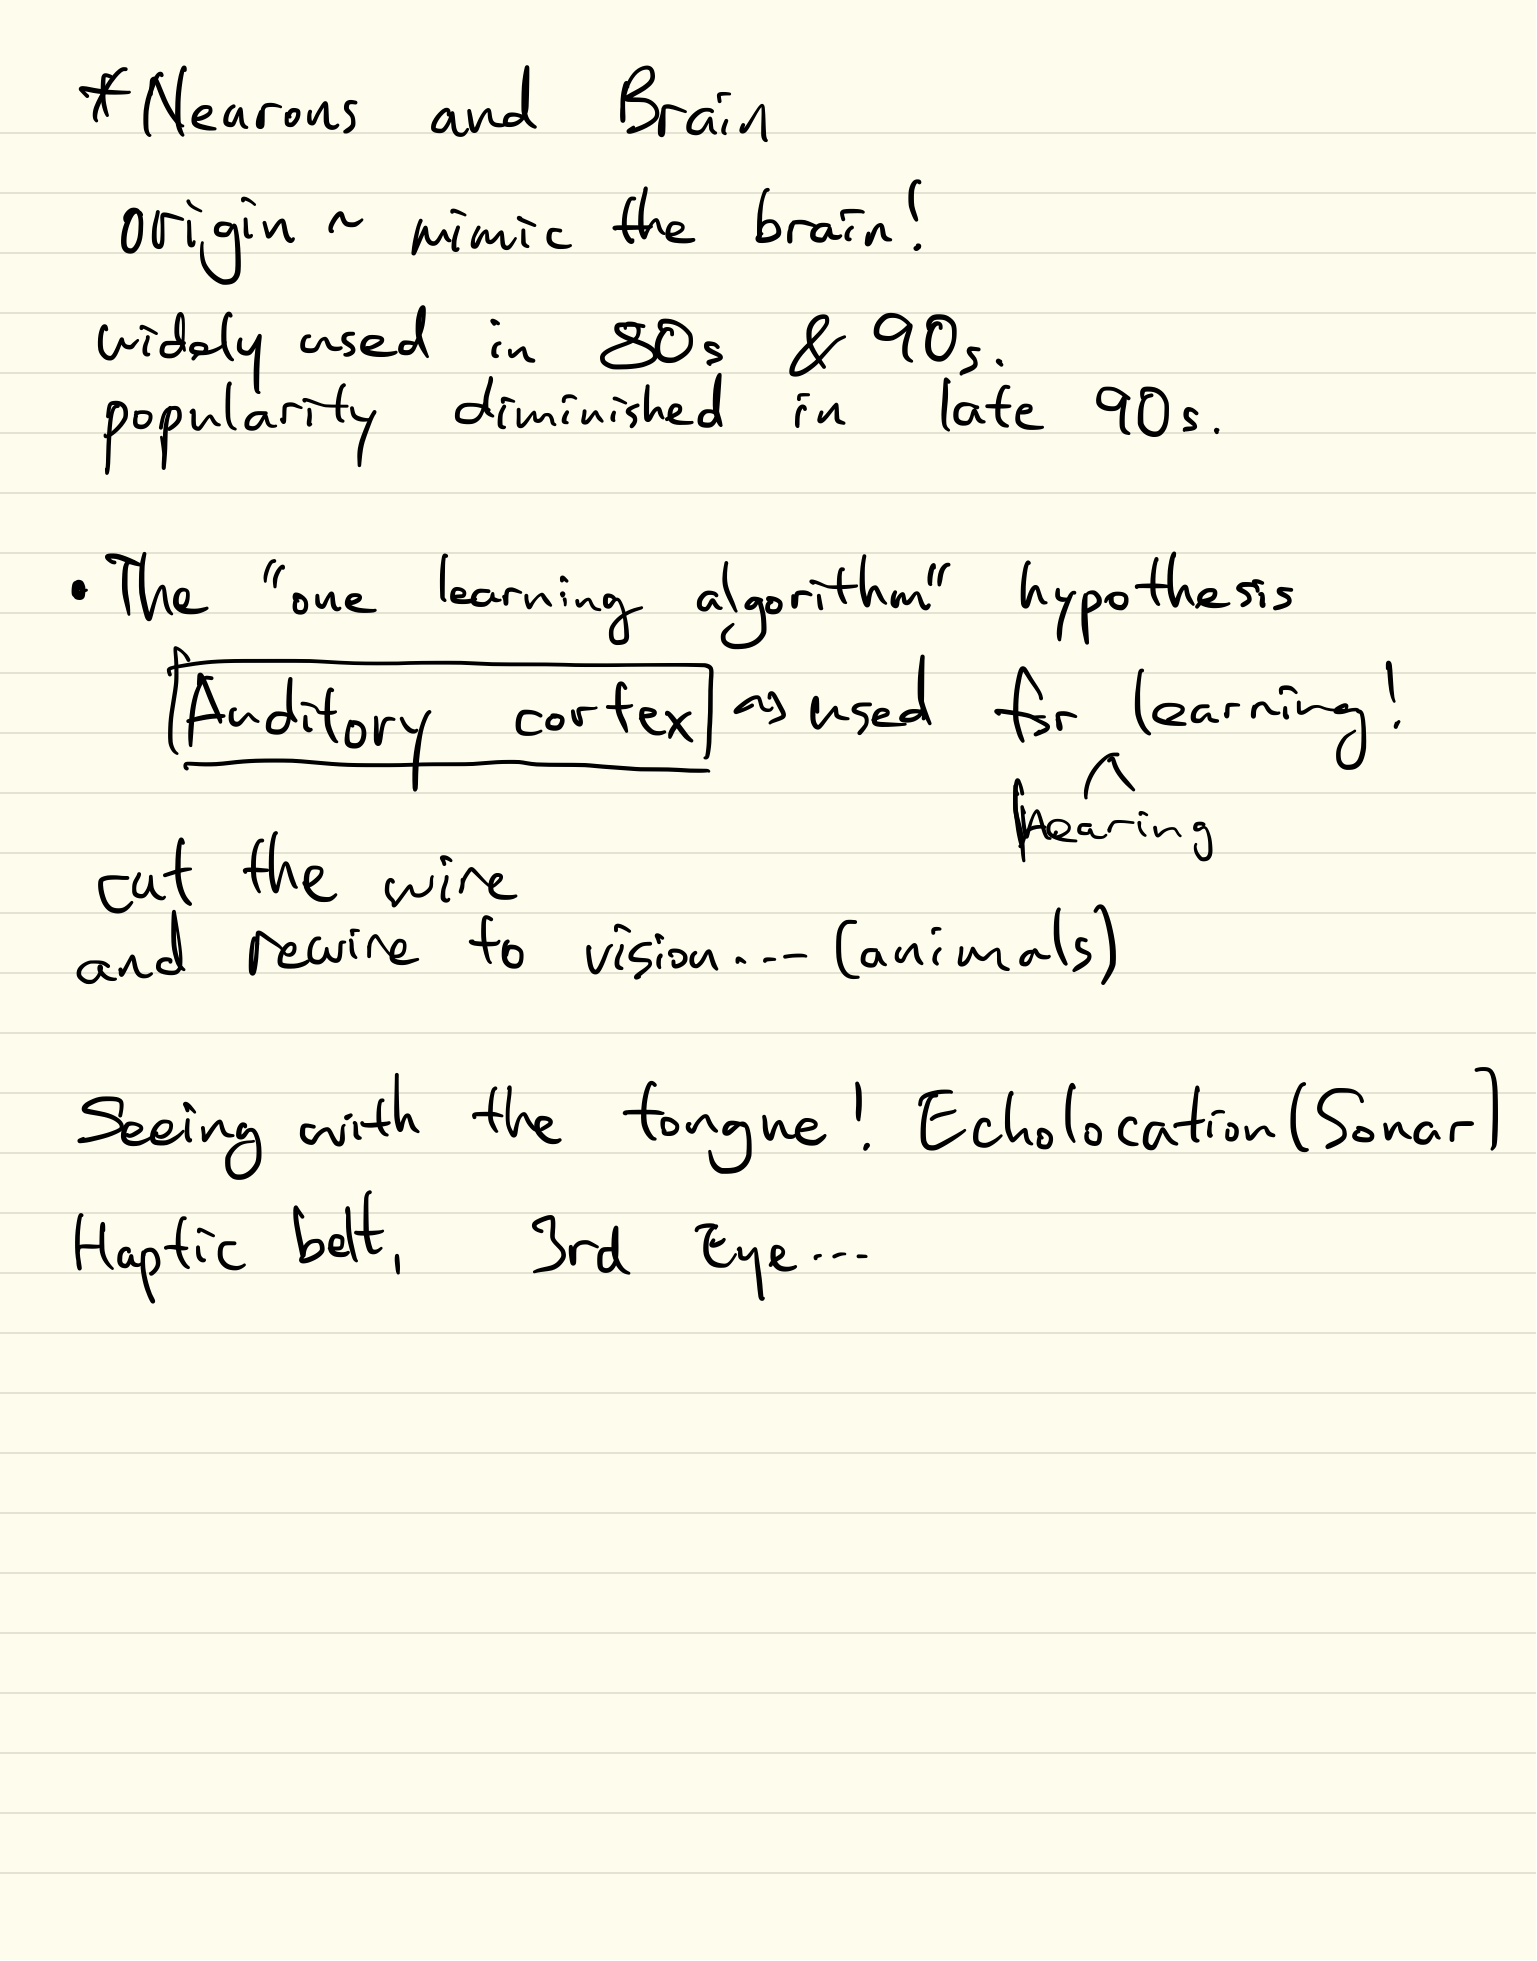 *Nearons and Brain
origin ~ mimic the brain!
widely used in 80s & 90s.
popularity diminished in late 90s.
• The "one learning algorithm" hypothesis
Auditory cortex ~> used for learning!
hearing
cut the wire
and rewire to vision.... (animals)
Seeing with the tongue! Echolocation(Sonar)
Haptic belt, 3rd Eye...